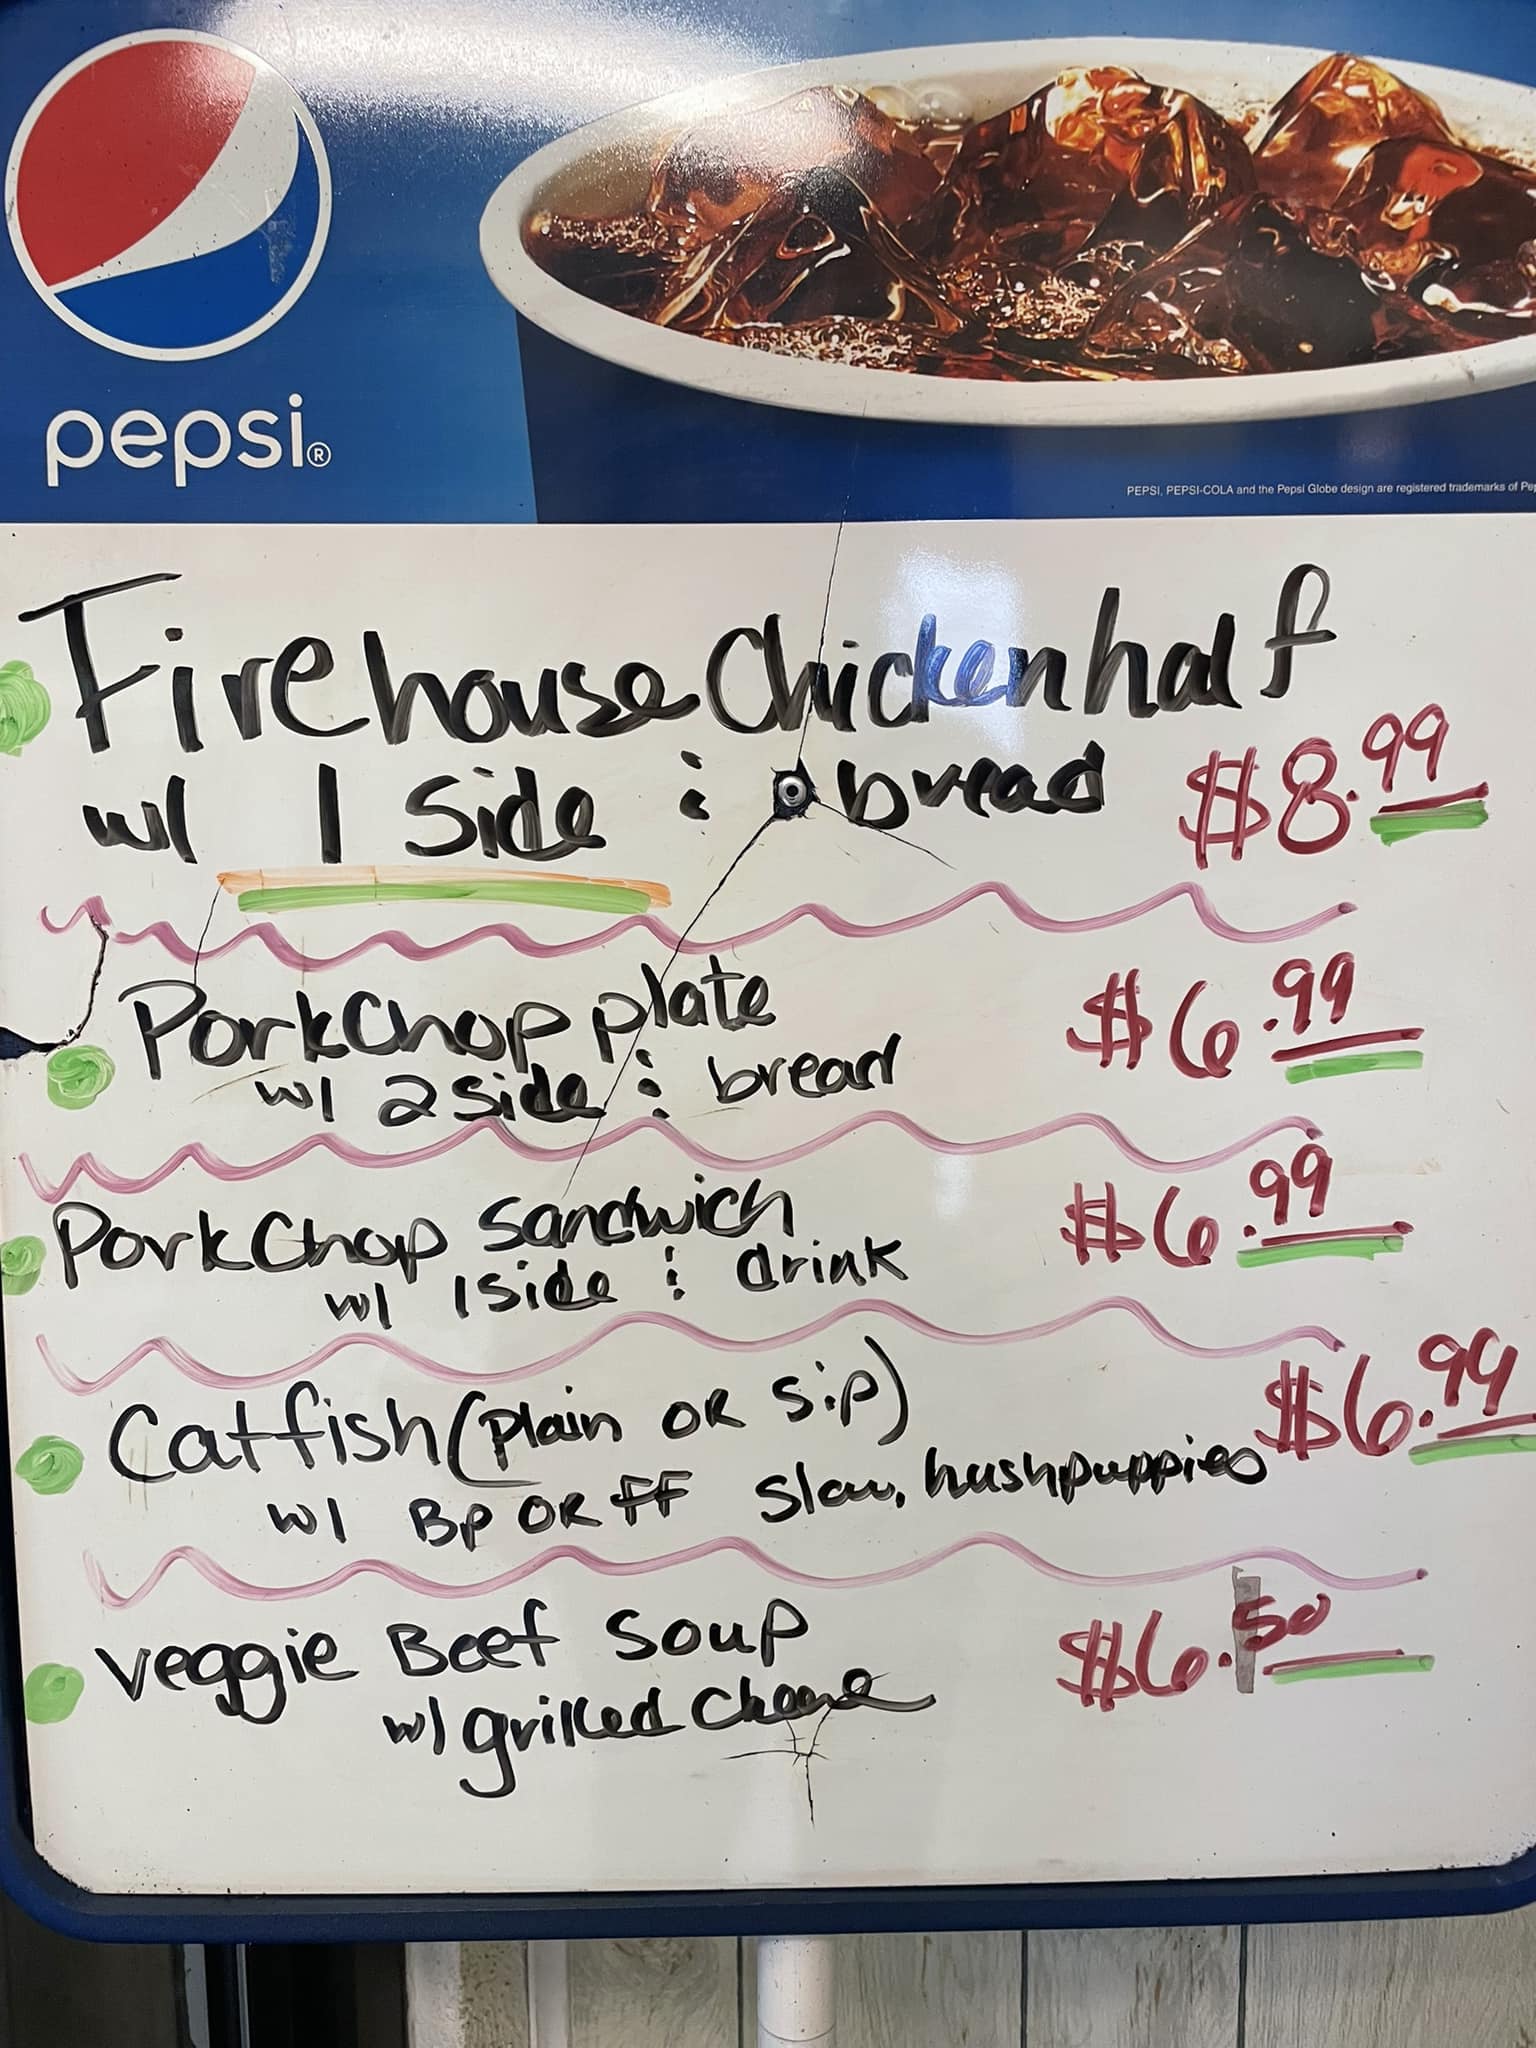 pepsi®
PEPSI, PEPSI-COLA and the Pepsi Globe design are registered trademarks of Pep
Firehouse Chicken half
w/ 1 Side & bread $8.99
PorkChop plate $6.99
w/ 2 Side & bread
PorkChop Sandwich $6.99
w/ 1 side & drink
Catfish (Plain OR S.P) $6.99
w/ BP OR FF Slaw, hushpuppies
Veggie Beef Soup $6.50
w/ grilled Cheese